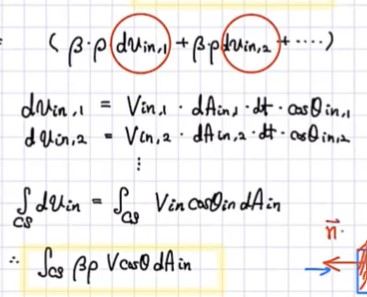 ( β·ρ dυin,1 + β·ρ dυin,2 + ····· )
dυin,1 = Vin,1 · dAin,1 · dt · cosθin,1
dυin,2 = Vin,2 · dAin,2 · dt · cosθin,2
⋮
∫CS dυin = ∫CS Vin cosθin dAin
n⃗
∴ ∫CS βρ V cosθ dA in